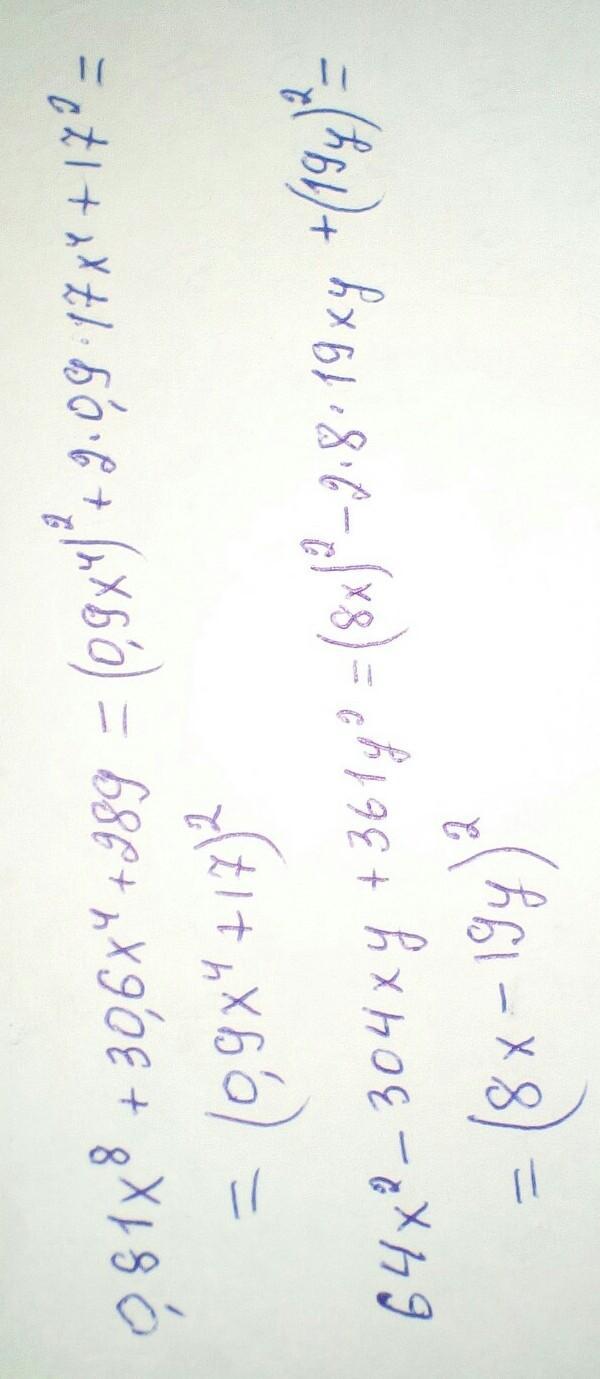 0,81x⁸ + 30,6x⁴ + 289 = (0,9x⁴)² + 2·0,9·17x⁴ + 17² =
= (0,9x⁴ + 17)²
64x² - 304xy + 361y² = (8x)² - 2·8·19xy + (19y)² =
= (8x - 19y)²